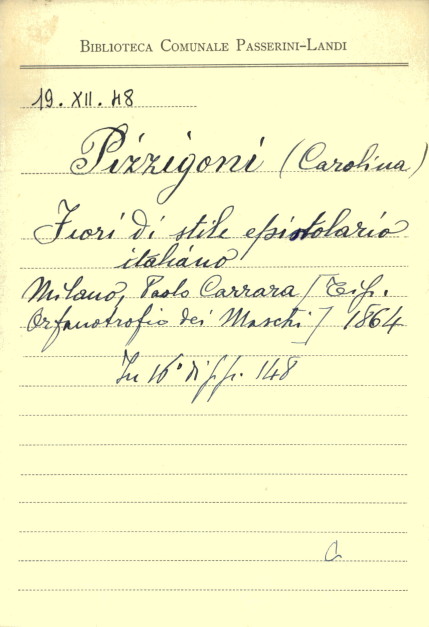 BIBLIOTECA COMUNALE PASSERINI-LANDI
19. XII. 48
Pizzigoni (Carolina)
Fiori di stile epistolario
italiano
Milano, Paolo Carrara [Tip.
Orfanotrofio dei Maschi] 1864
In 16° di pp. 148